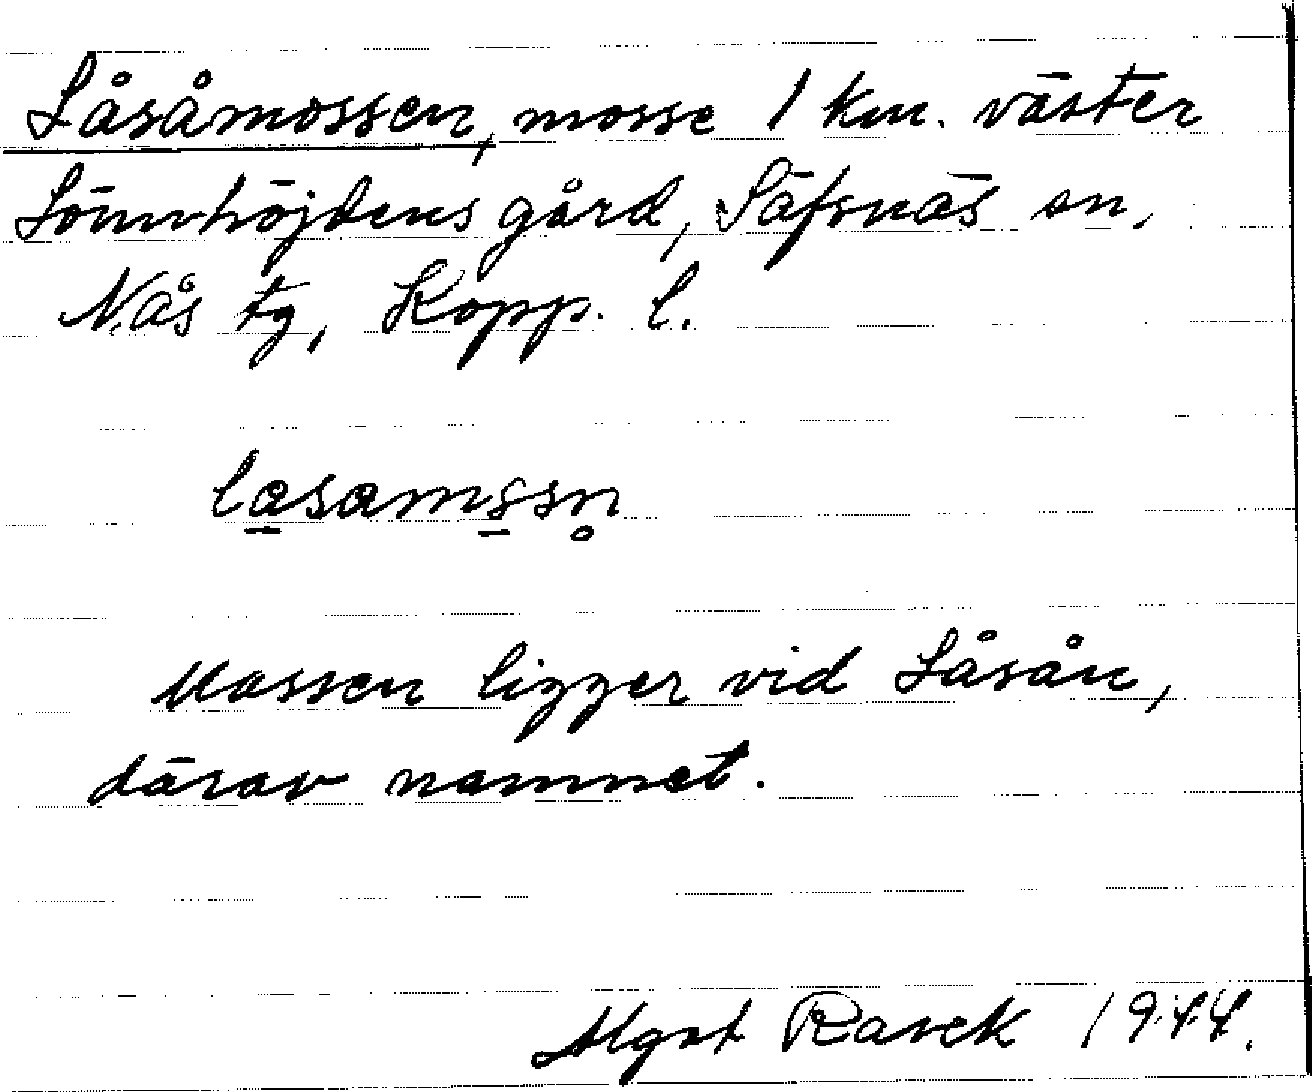 Låsåmossen, mosse 1 km. väster
Lönnhöjdens gård, Säfsnäs sn,
Nås tg, Kopp. l.
Mossen ligger vid Låsån,
därav namnet.
Algot Rasck 1944.